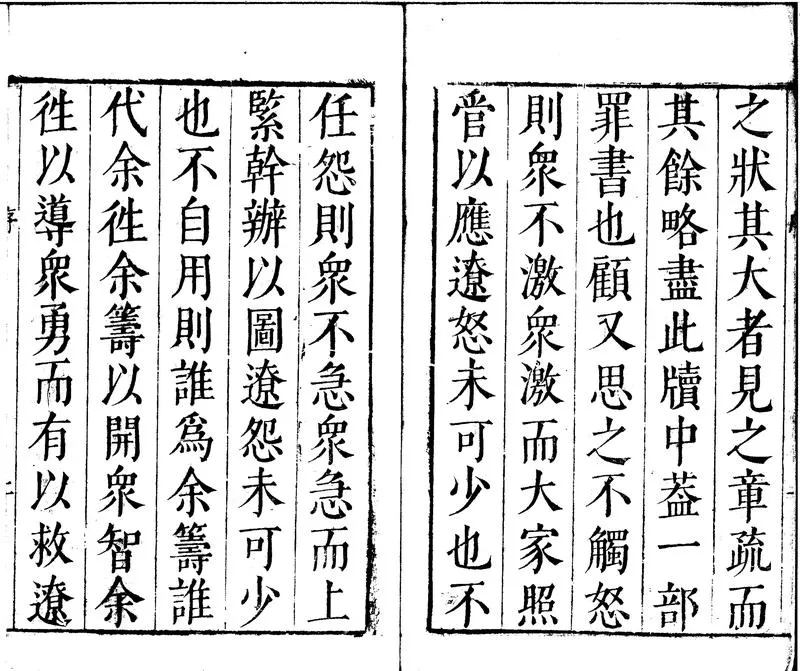 之狀其大者見之章疏而
其餘略盡此牘中葢一部
罪書也顧又思之不觸怒
則衆不激衆激而大家照
管以應遼怒未可少也不
任怨則衆不急衆急而上
緊幹辦以圖遼怨未可少
也不自用則誰爲余籌誰
代余徃余籌以開衆智余
徃以導衆勇而有以救遼